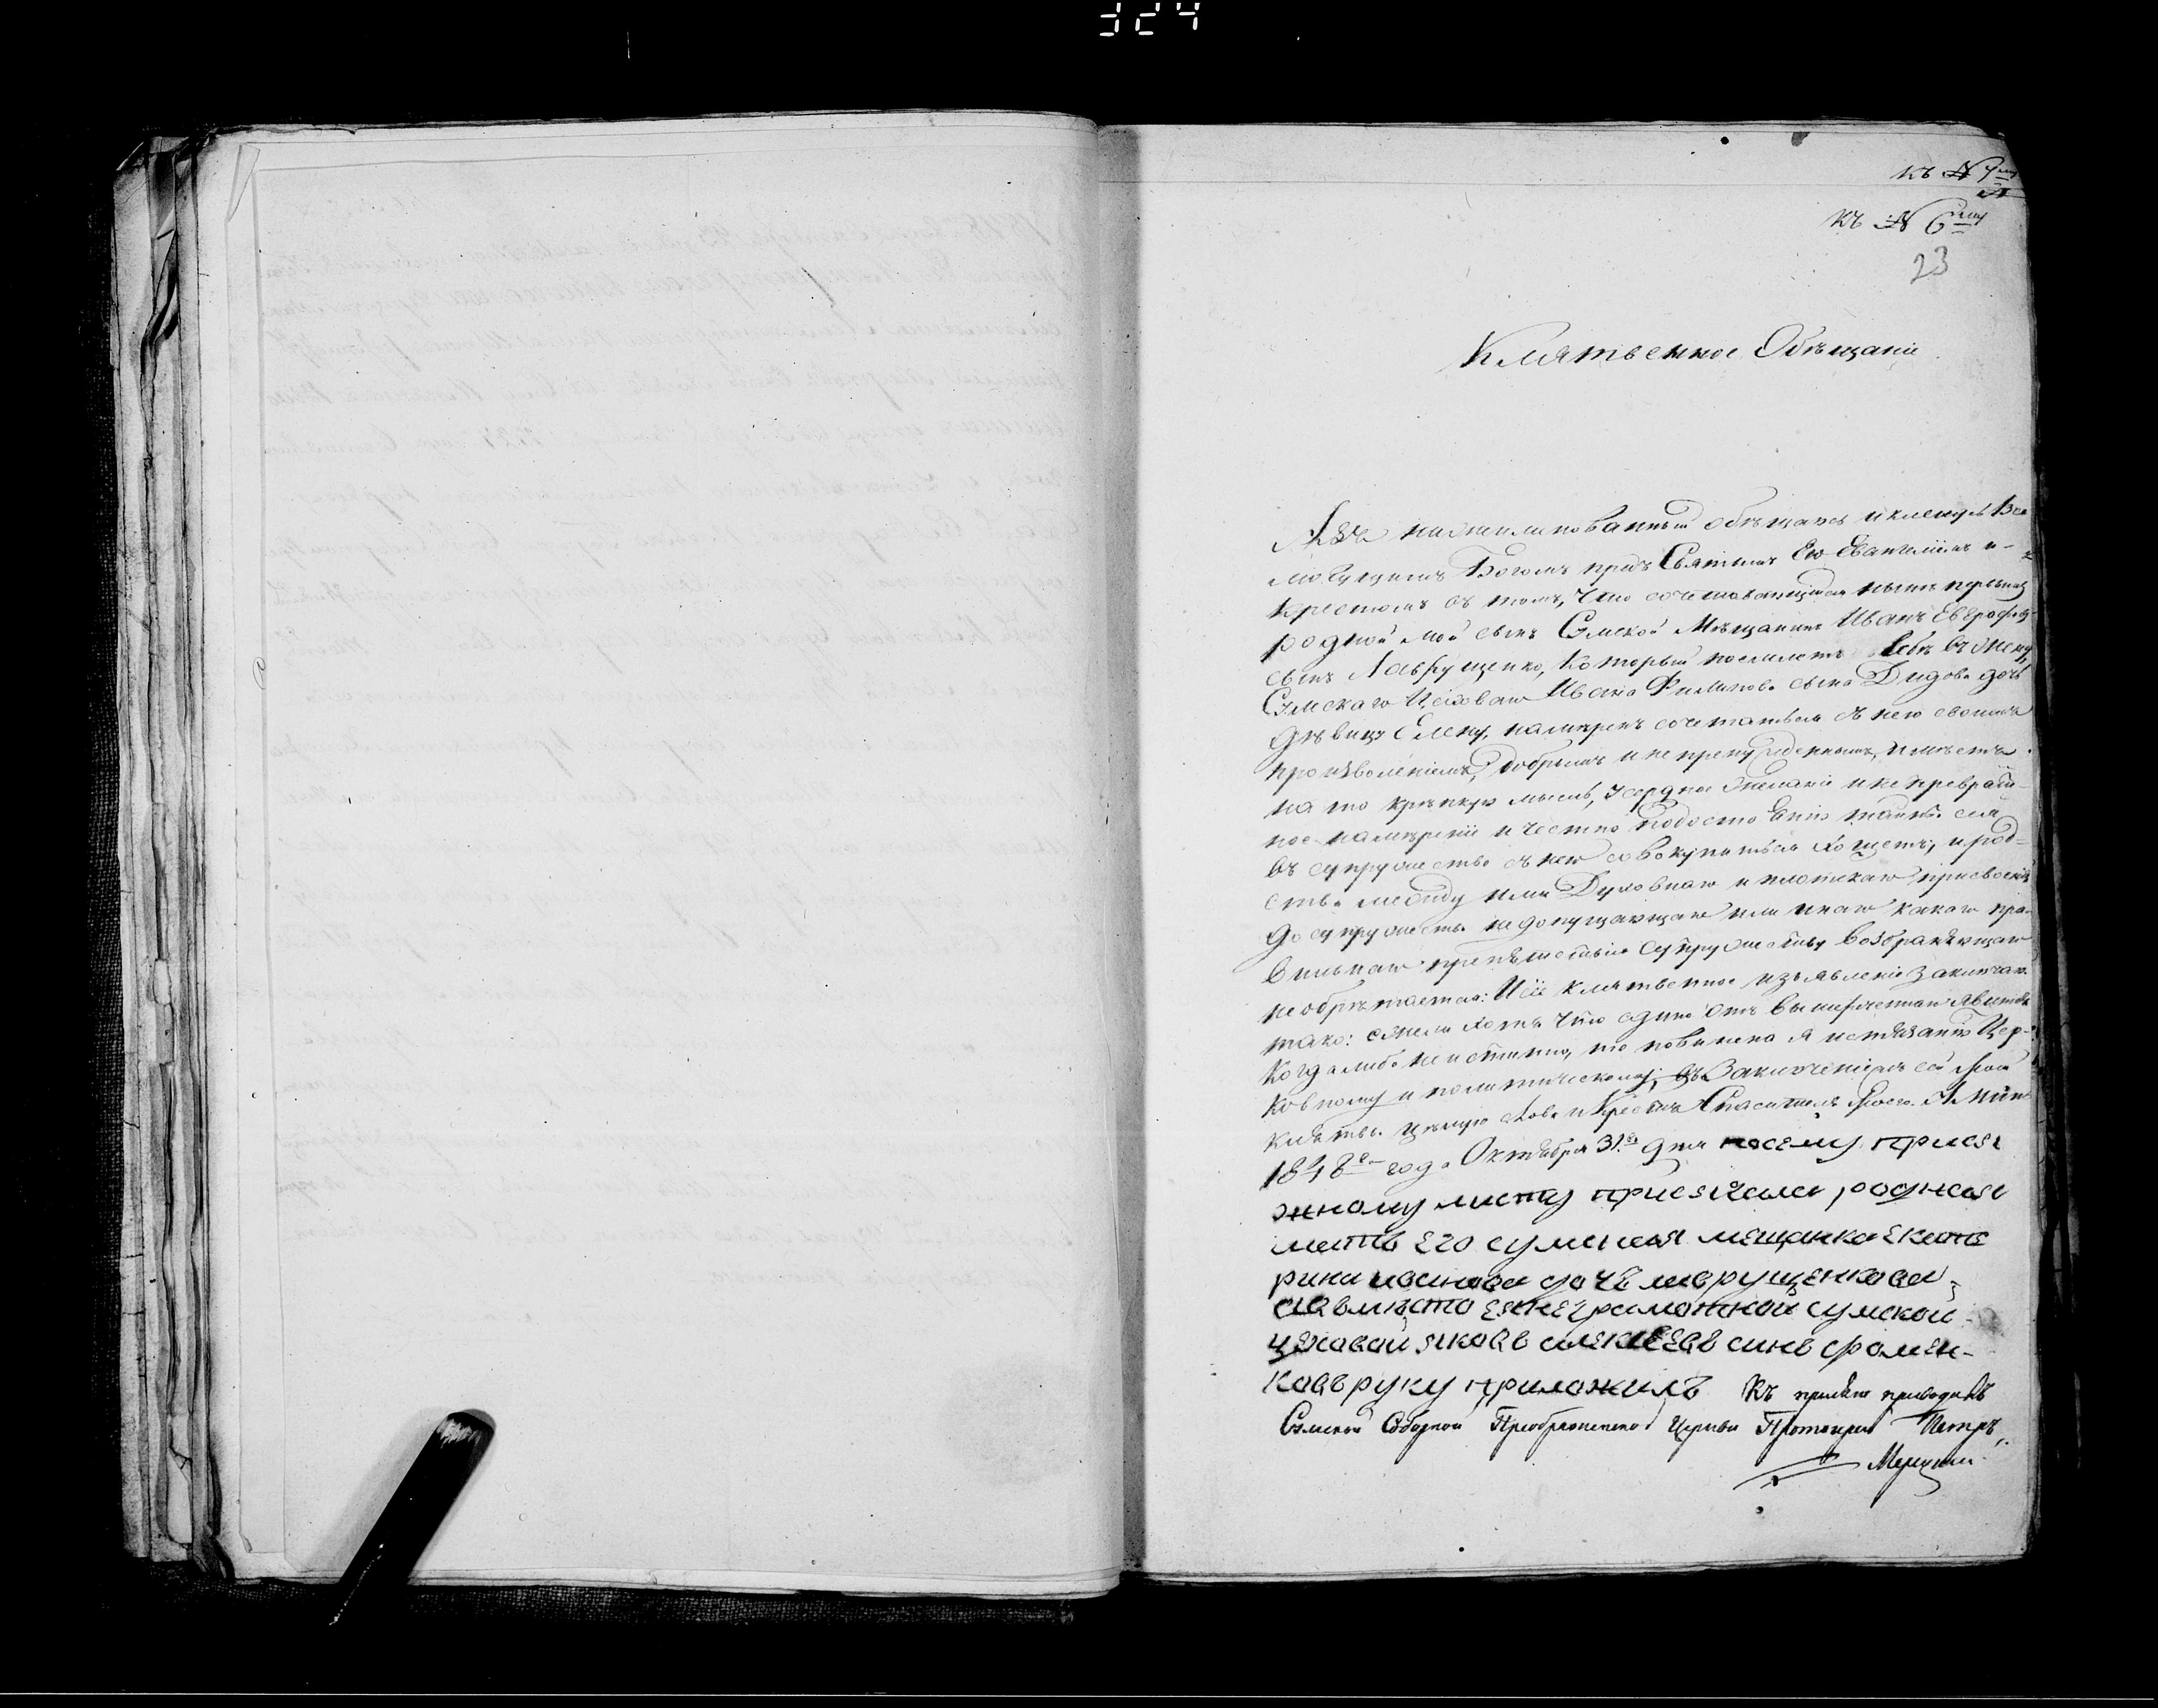 324
къ № 7му
къ № 6му
23
Клятвенное Обѣщаніе
Азъ нижеимянованный обѣщаюсь и кленусь Все
могущимъ Богомъ предъ Святымъ Его Евангеліемъ и
крестомъ въ томъ, что сочетавающійся нынѣ
родной мой сынъ Сумской Мѣщанинъ Иванъ
сынъ Лаврущенко, который поемлетъ себѣ въ жену
Сумскаго Цеховаго Ивана Филипова сына Дидова дочь
дѣвицу Елену, намѣренъ сочетаться съ нею своимъ
произволеніемъ, добрымъ и непренужденнымъ, имѣетъ
на то крѣпкую мысль, усердное желаніе и непреврат-
ное намѣреніе и честно
въ супружество съ нею совокупиться хощетъ, и род-
ства между ими Духовнаго и плотскаго присвоенія
до супружества недопущающаго или инаго какаго пра-
вильнаго препятствія супружеству возбраняющаго
необрѣтается: И сіе клятвенное изъявленіе заключаю
тако: ежели хотя что едино отъ вышеписанныхъ явится
когда либо неистинно, то повинена я истязанію Цер-
ковному и политическому; Въ заключеніи сей моей
клятвы цѣлую слова и Крестъ Спасителя моего. Аминь
1848го года Октября 31го дня посему прися
жному листу присягала родная
мать его сумская мещанка екате
рина дочь лаврущенкова
а вместо ея неграмотной сумской
цеховой яковъ алексеевъ синъ фомен-
ковъ руку приложилъ Къ присягѣ приводилъ
Сумской Соборной Преображенской Церкви Протоіерей Петръ